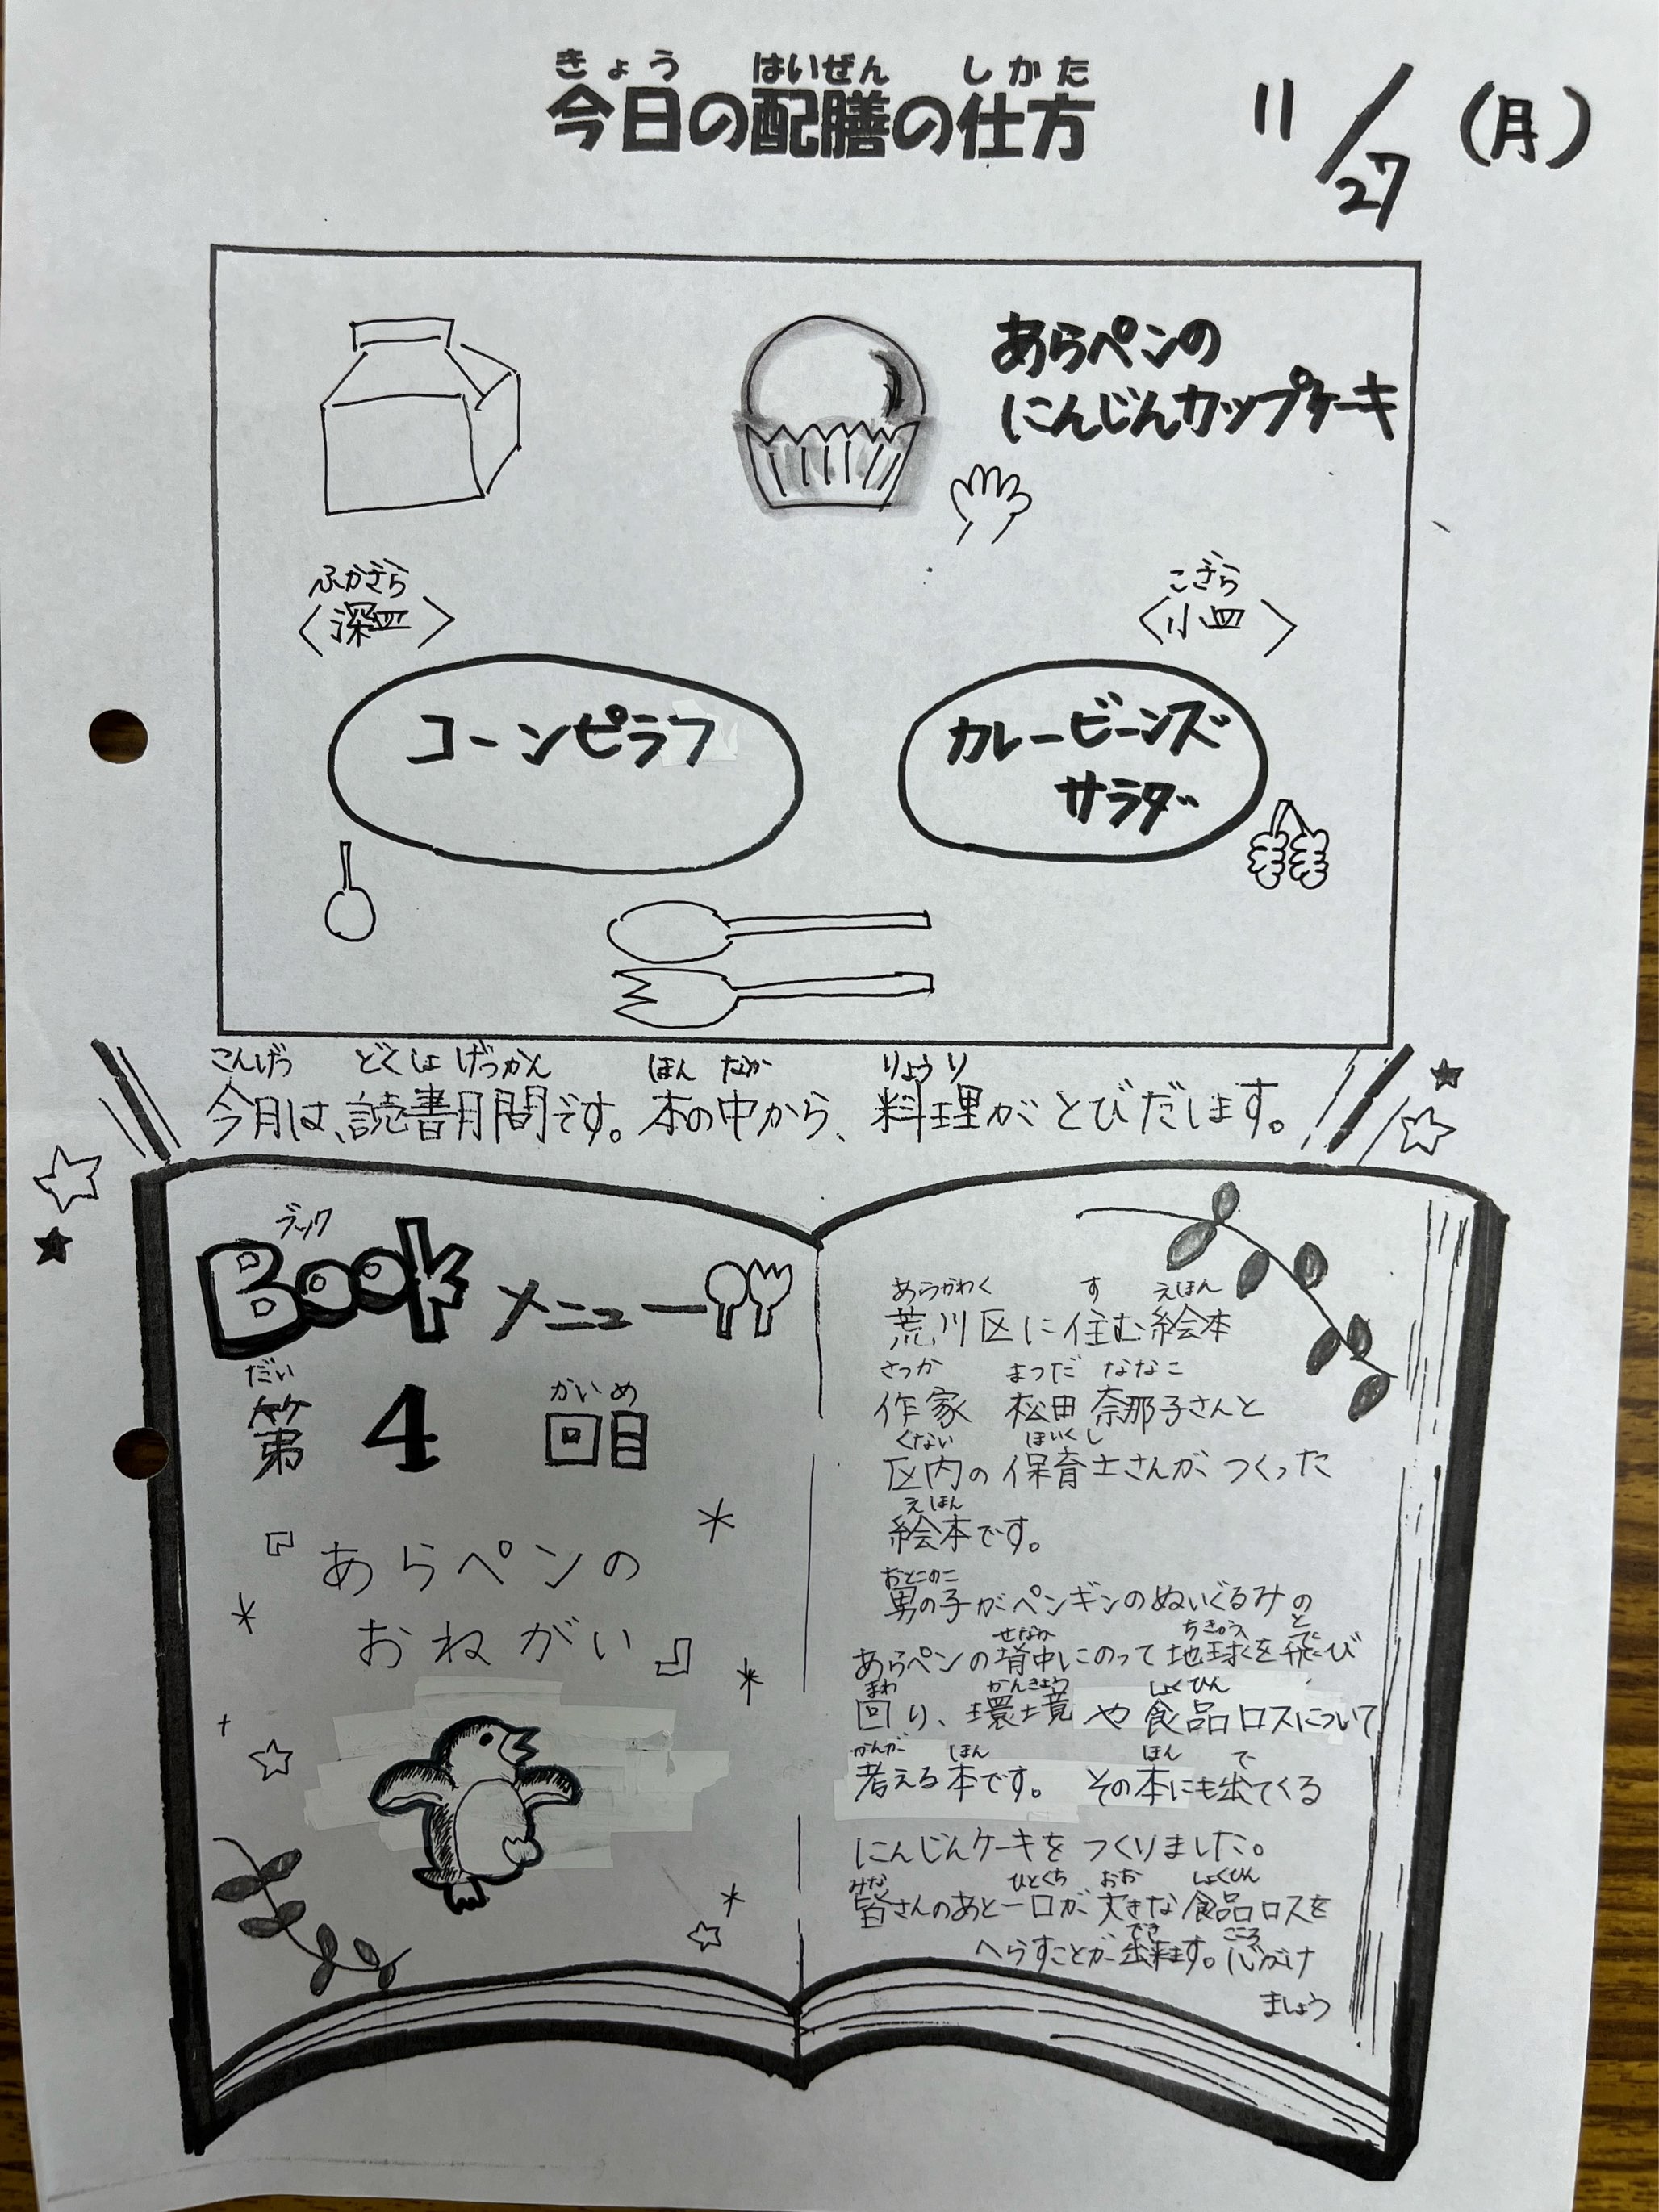 きょう はいぜん しかた
今日の配膳の仕方
11/27(月)
あらペンの
にんじんカップケーキ
ふかざら
〈深皿〉
こざら
〈小皿〉
コーンピラフ
カレービーンズ
サラダ
こんげつ どくしょ げっかん ほん なか りょうり
今月は、読書月間です。本の中から、料理がとびだします。
ブック
Book メニュー
だい かいめ
第4回目
『あらペンの
おねがい』
あらかわく す えほん
荒川区に住む絵本
さっか まつだ ななこ
作家 松田 奈那子さんと
くない ほいくし
区内の保育士さんが、つくった
えほん
絵本です。
おとこのこ
男の子がペンギンのぬいぐるみの
せなか ちきゅう と
あらペンの背中にのって地球を飛び
まわ かんきょう しょくひん
回り、環境や食品ロスについて
かんが ほん ほん で
考える本です。 その本にも出てくる
にんじんケーキをつくりました。
みな ひとくち おお しょくひん
皆さんのあと一口が、大きな食品ロスを
でき こころ
へらすことが出来ます。心がけ
ましょう